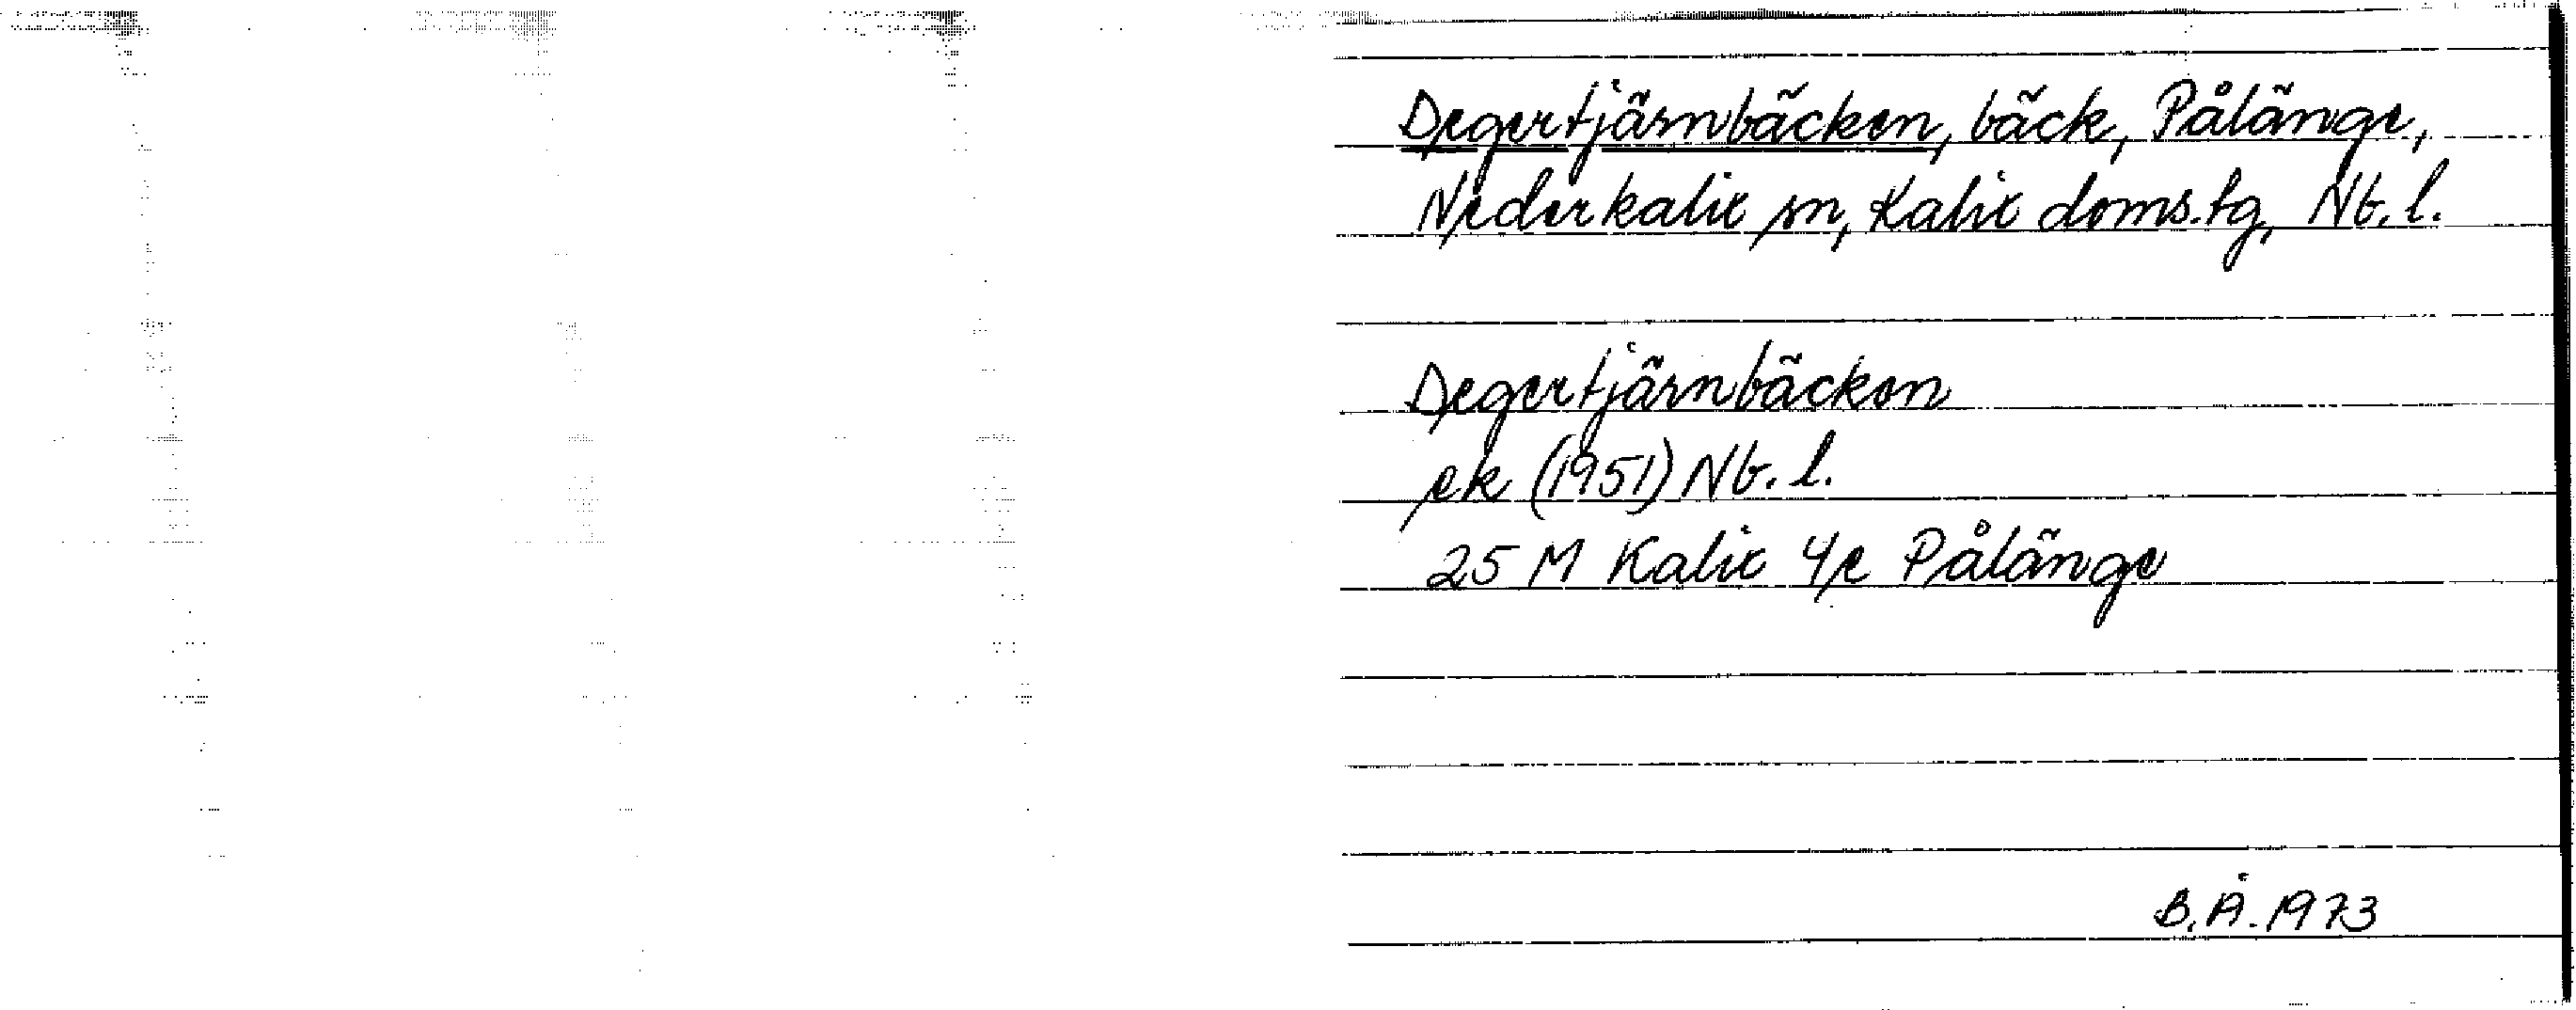 Degertjärnbäcken, bäck, Pålänge,
Nederkalix sn, Kalix doms.tg, Nb.l.
Degertjärnbäcken
ek (1951) Nb.l.
25 M Kalix 4e Pålänge
B.Å. 1973